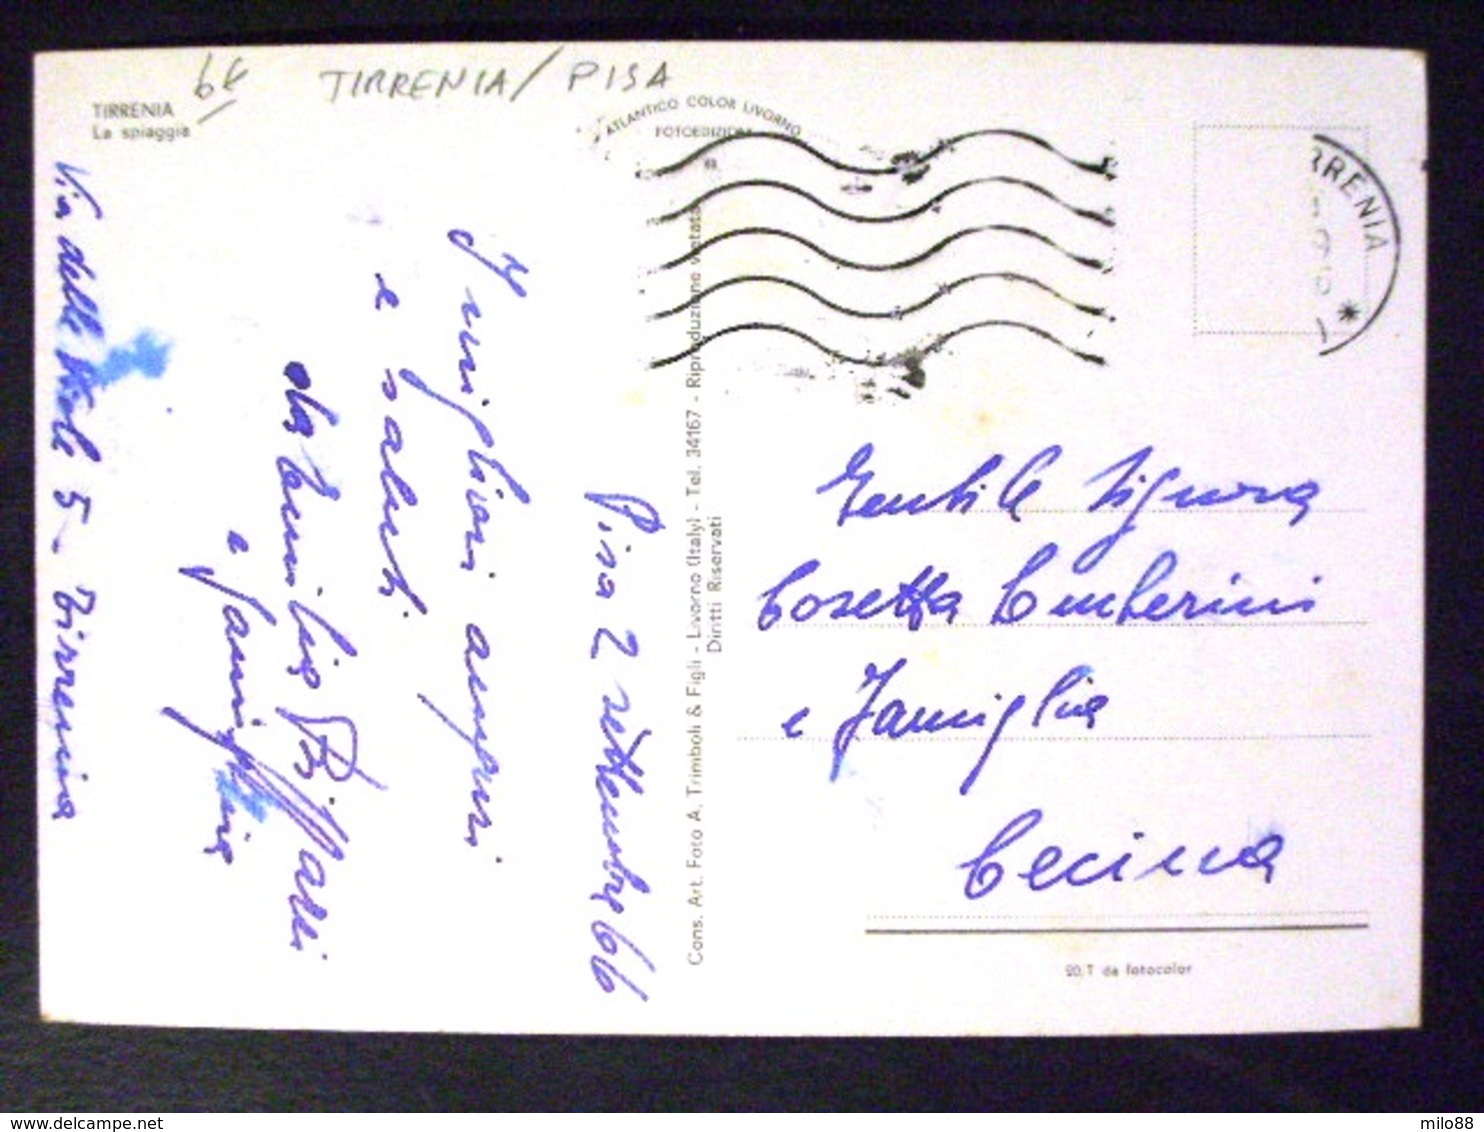 6€
TIRRENIA/PISA
TIRRENIA
La spiaggia
ATLANTICO COLOR LIVORNO
FOTOEDIZIONI
RRENIA
Pisa 2 settembre 66
I migliori auguri
e saluti
da Emilia
e famiglia
Via delle Viole 5 - Tirrenia
Cons. Art. Foto A. Trimboli & Figli - Livorno (Italy) - Tel. 34167 - Riproduzione vietata
Diritti Riservati
Gentile Signora
Cosetta
e Famiglia
Cecina
20.T da fotocolor
delcampe.net
milo88